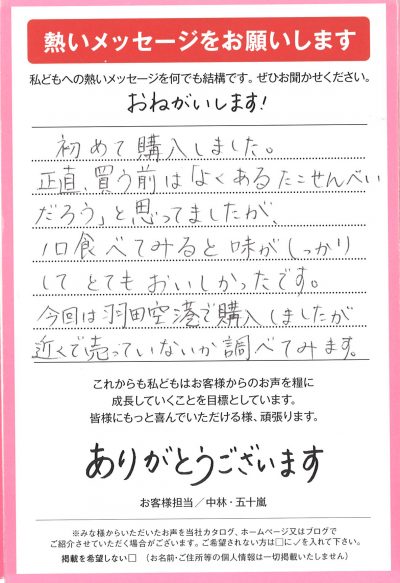 熱いメッセージをお願いします
私どもへの熱いメッセージを何でも結構です。ぜひお聞かせください。
おねがいします!
初めて購入しました。
正直、買う前は「よくあるたこせんべい
だろう」と思ってましたが、
1口食べてみると味がしっかり
してとてもおいしかったです。
今回は羽田空港で購入しましたが
近くで売っていないか調べてみます。
これからも私どもはお客様からのお声を糧に
成長していくことを目標としています。
皆様にもっと喜んでいただける様、頑張ります。
ありがとうございます
お客様担当/中林・五十嵐
※みな様からいただいたお声を当社カタログ、ホームページ又はブログで
ご紹介させていただく場合がございます。ご希望されない方は□に✓を入れて下さい。
掲載を希望しない□ (お名前・ご住所等の個人情報は一切掲載いたしません)